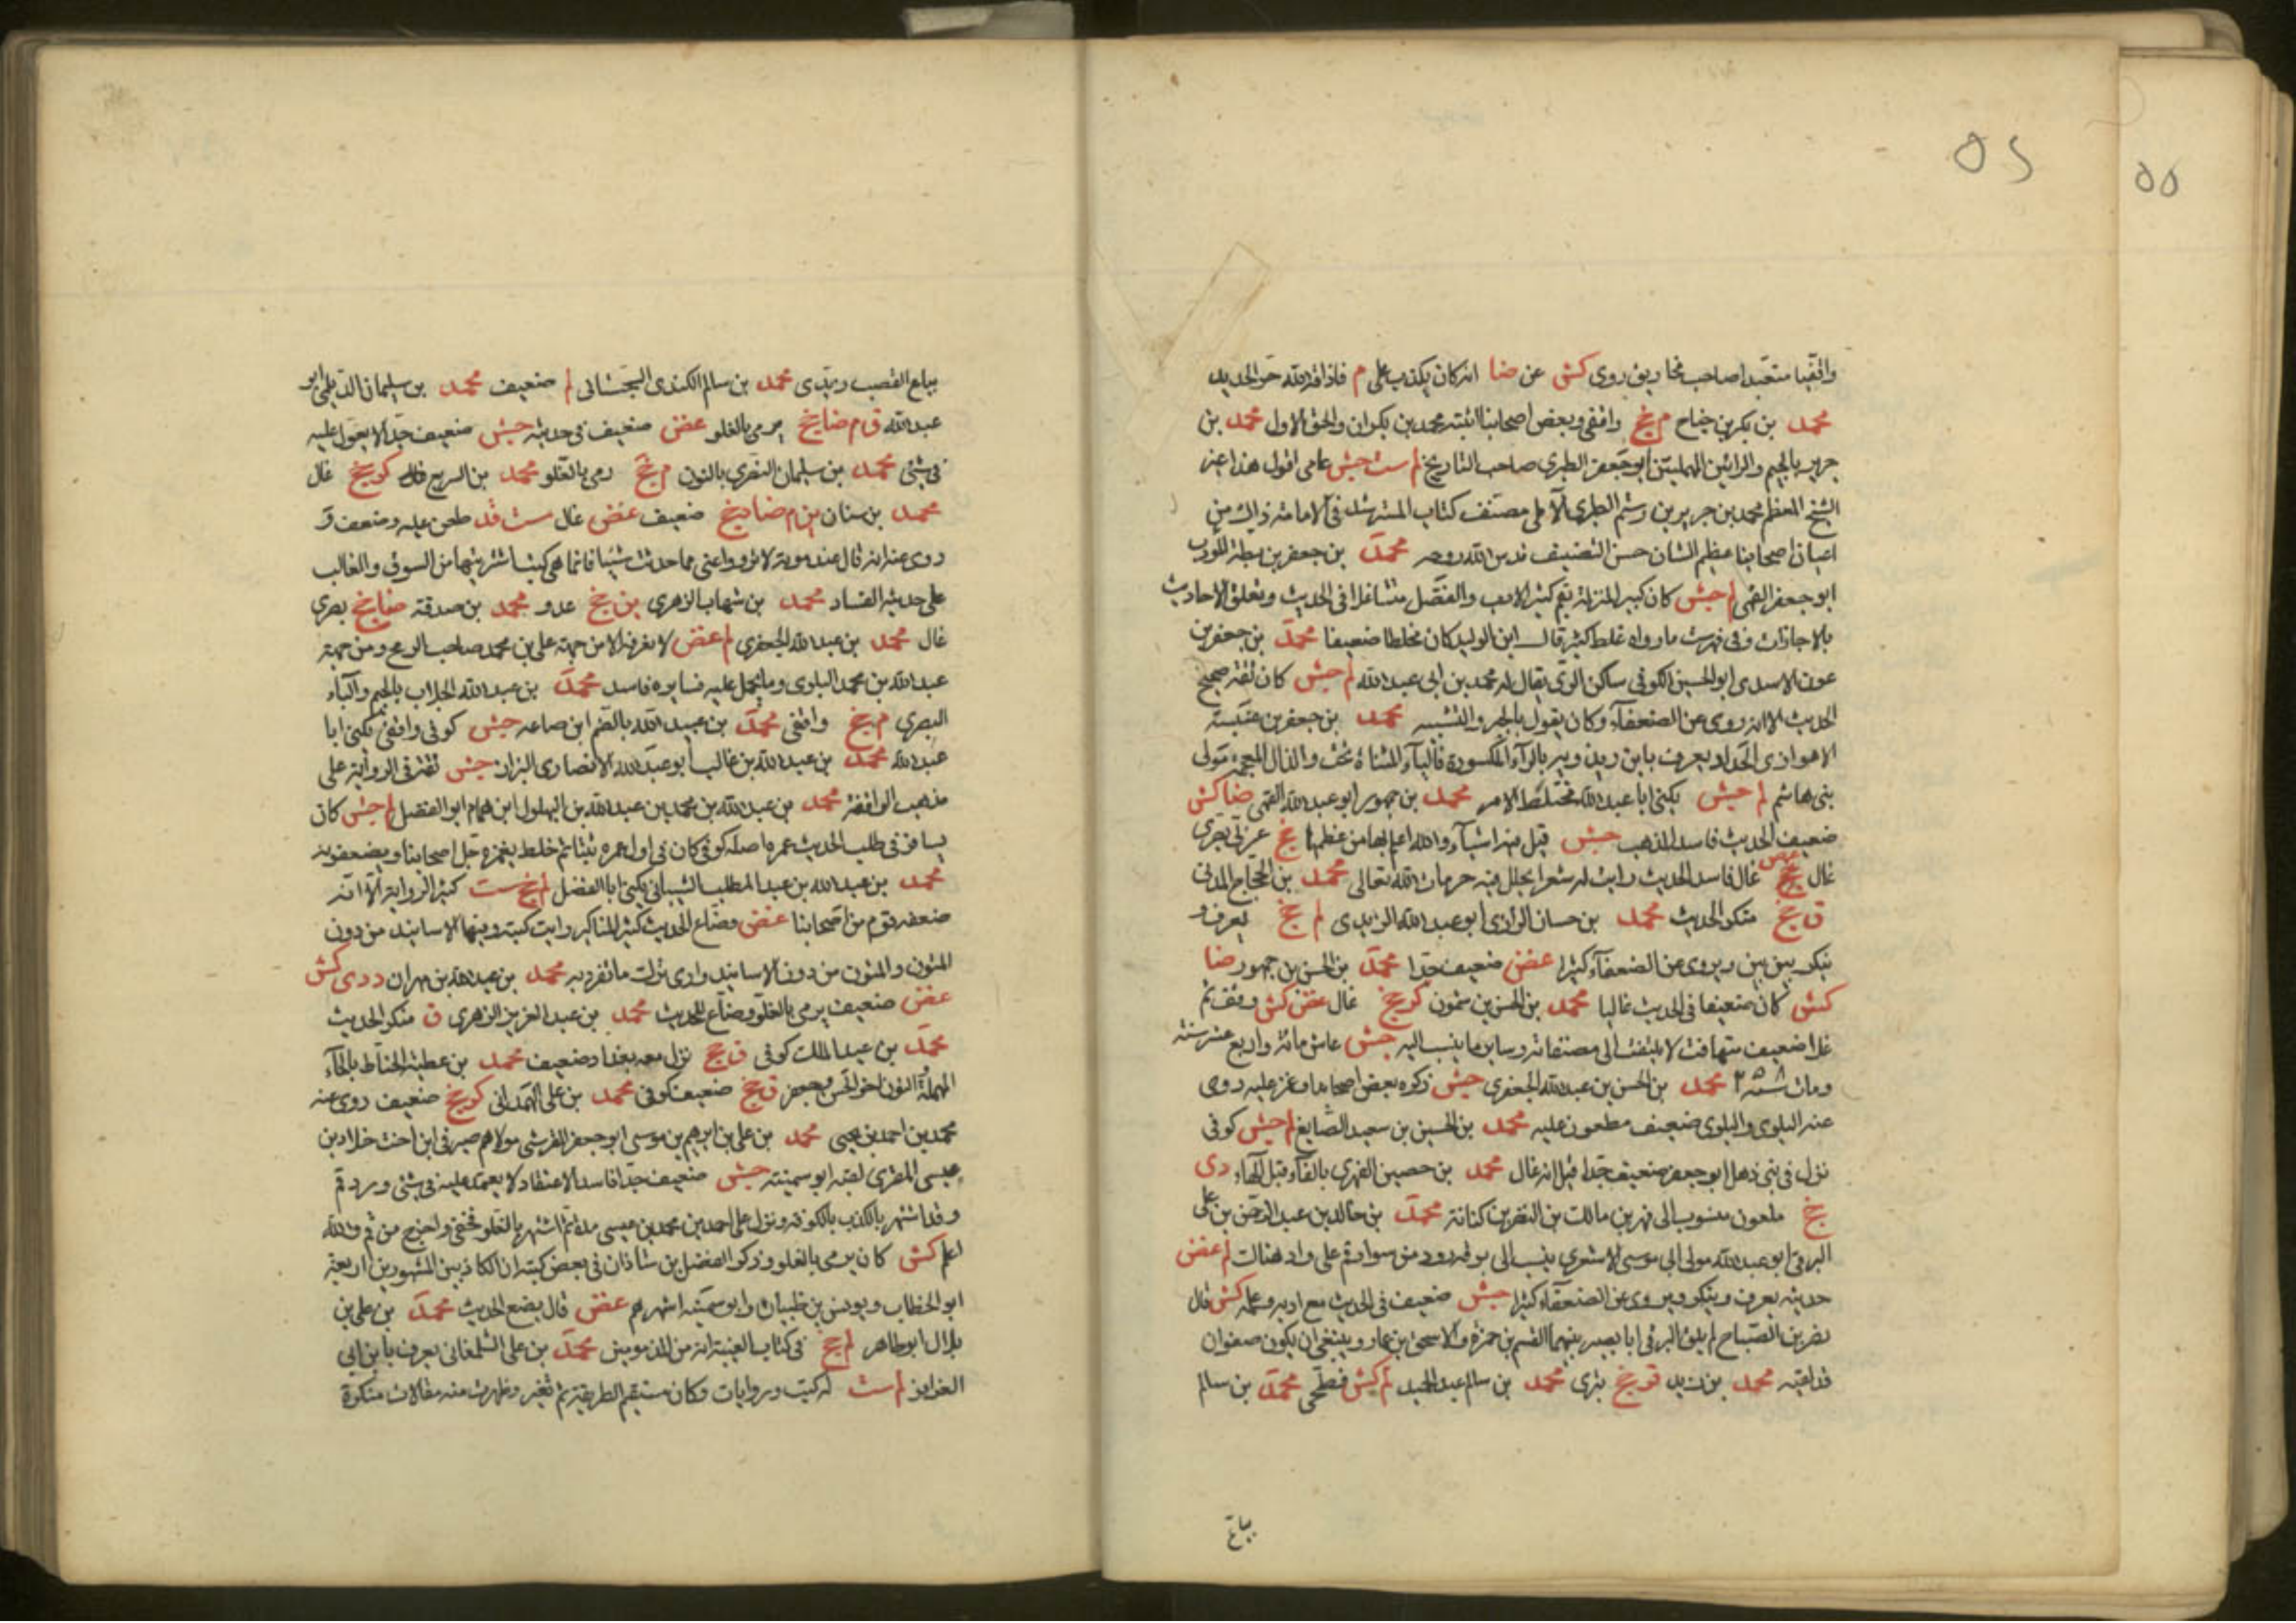 واقفيا متعبدا صاحب مخاريق روى كش عن ضا انه كان يكذب على م فاذاقه الله حر الحديد
محمد بن بكر بن جناح م جخ واقفى وبعض اصحابنا اثبته محمد بن بكران والحق الاول محمد بن
جرير بالجيم والرائين المهملتين ابو جعفر الطبرى صاحب التاريخ لم ست جش عامى اقول هذا غير
الشيخ المعظم محمد بن جرير بن رستم الطبرى الآملى مصنف كتاب المسترشد فى الامامة ذاك من
اعيان اصحابنا عظيم الشان حسن التصنيف قدس الله روحه محمد بن جعفر بن بطة المؤدب
ابو جعفر القمى لم جش كان كبير المنزلة بقم كثير الادب والفضل متساهلا فى الحديث ويعلق الاحاديث
بالاجازات وفى فهرست مارواه غلط كثير قال ابن الوليد كان مخلطا ضعيفا محمد بن جعفر بن
عون الاسدى ابو الحسين الكوفى ساكن الرى يقال له محمد بن ابى عبد الله لم جش كان ثقة صحيح
الحديث الا انه روى عن الضعفاء وكان يقول بالجبر والتشبيه محمد بن جعفر بن عنبسة
الاهوازى الحداد يعرف بابن رويدة بالراء المكسورة فالياء المثناة تحت والذال المعجمة مولى
بنى هاشم لم جش يكنى ابا عبد الله مختلط الامر محمد بن جمهور ابو عبد الله القمى ضا كش
ضعيف الحديث فاسد المذهب جش قيل فيه اشياء والله اعلم بها من عظمها جخ عربى بصرى
غال غض غال فاسد الحديث رايت له شعرا يحلل فيه حرمات الله تعالى محمد بن الحجاج المدنى
ق جخ منكر الحديث محمد بن حسان الرازى ابو عبد الله الزيدى لم جخ يعرف و
ينكر بين بين ويروى عن الضعفاء كثيرا غض ضعيف جدا محمد بن الحسن بن جمهور ضا
كش كان ضعيفا فى الحديث غاليا محمد بن الحسن بن شمون كر جخ غال غض كش وقف ثم
غلا ضعيف متهافت لا يلتفت الى مصنفاته وساير ما ينسب اليه جش عاش مائة واربع عشر سنة
ومات محمد بن الحسن بن عبد الله الجعفرى جش ذكره بعض اصحابنا وغمز عليه روى
عنه البلوى والبلوى ضعيف مطعون عليه محمد بن الحسين بن سعيد الصايغ لم جش كوفى
نزل فى بنى ذهل ابو جعفر ضعيف جدا قيل انه غال محمد بن حصين الفهرى بالفاء قبل الهاء دى
جخ ملعون منسوب الى فهر بن مالك بن النضر بن كنانة محمد بن خالد بن عبد الرحمن بن على
البرقى ابو عبد الله مولى ابى موسى الاشعرى ينسب الى برقه رود من سواد قم على واد هناك لم غض
حديثه يعرف وينكر ويروى عن الضعفاء كثيرا جش ضعيف فى الحديث مع ادبه وعلمه كش قال
نصر بن الصباح لم يلق البرقى ابا بصير بينهما القسم بن حمزة ولا اسحق بن عمار وينبغى ان يكون صفوان
قد لقيه محمد بن زيد قر جخ بترى محمد بن سالم عبد الحميد لم كش فطحى محمد بن سالم
بياع
بياع القصب زيدى محمد بن سالم الكندى السجستانى لم ضعيف محمد بن سليمان الديلمى ابو
عبد الله ق م ضا جخ يرمى بالغلو غض ضعيف فى حديثه جش ضعيف جدا لا يعول عليه
فى شئ محمد بن سليمان النصرى بالنون م جخ رمى بالغلو محمد بن الربيع كر جخ غال
محمد بن سنان م ضا د جخ ضعيف غض غال ست قد طعن عليه وضعف و
روى عنه انه قال عند موته لا ترووا عنى مما حدثت شيئا فانما هى كتب اشتريتها من السوق والغالب
على حديثه الفساد محمد بن شهاب الزهرى ين جخ عدو محمد بن صدقة ضا جخ بصرى
غال محمد بن عبد الله الجعفرى لم غض لا نعرفه الا من جهة على بن محمد صاحب الزنج ومن جهة
عبد الله بن محمد البلوى وما يحمل عليه فسايره فاسد محمد بن عبد الله الجلاب بالجيم والباء
البصرى م جخ واقفى محمد بن عبيد الله بالضم ابن صاعد جش كوفى واقفى يكنى ابا
عبد الله محمد بن عبد الله بن غالب ابو عبد الله الانصارى البزاز جش ثقة فى الرواية على
مذهب الواقفة محمد بن عبد الله بن محمد بن عبد الله بن البهلول ابن همام ابو الفضل لم جش كان
يسافر فى طلب الحديث عمره اصله كوفى كان فى اول عمره ثبتا ثم خلط يغمزه جل اصحابنا ويضعفونه
محمد بن عبد الله بن عبد المطلب الشيبانى يكنى ابا الفضل لم جخ ست كثير الرواية الا انه
ضعفه قوم من اصحابنا غض وضاع للحديث كثير المناكير رايت كتبه وفيها الاسانيد من دون
المتون والمتون من دون الاسانيد وارى ترك ما تفرد به محمد بن عبد الله بن مهران د دى كش
غض ضعيف يرمى بالغلو وضاع للحديث محمد بن عبد العزيز الزهرى ق منكر الحديث
محمد بن عبد الملك كوفى ق جخ نزل بغداد ضعيف محمد بن عطية الحناط بالحاء
المهملة والنون اخو الحسن وجعفر ق جخ ضعيف كوفى محمد بن على الهمدانى كر جخ ضعيف روى عنه
محمد بن احمد بن يحيى محمد بن على بن ابرهيم بن موسى ابو جعفر القرشى مولاهم صيرفى ابن اخت خلاد بن
عيسى المقرى لقبه ابو سمينة جش ضعيف جدا فاسد الاعتقاد لا يعتمد عليه فى شئ ورد قم
وقد اشتهر بالكذب بالكوفة ونزل على احمد بن محمد بن عيسى مدة ثم اشتهر بالغلو فخفى واخرج من قم والله
اعلم كش كان يرمى بالغلو وذكر الفضل بن شاذان فى بعض كتبه ان الكاذبين المشهورين اربعة
ابو الخطاب ويونس بن ظبيان وابو سمينة اشهرهم غض قال يضع الحديث محمد بن على بن
بلال ابو طاهر لم جخ فى كتاب الغيبة انه من المذمومين محمد بن على الشلمغانى يعرف بابن ابى
العزاقر لم ست له كتب وروايات وكان مستقيم الطريقة ثم تغير وظهرت منه مقالات منكرة